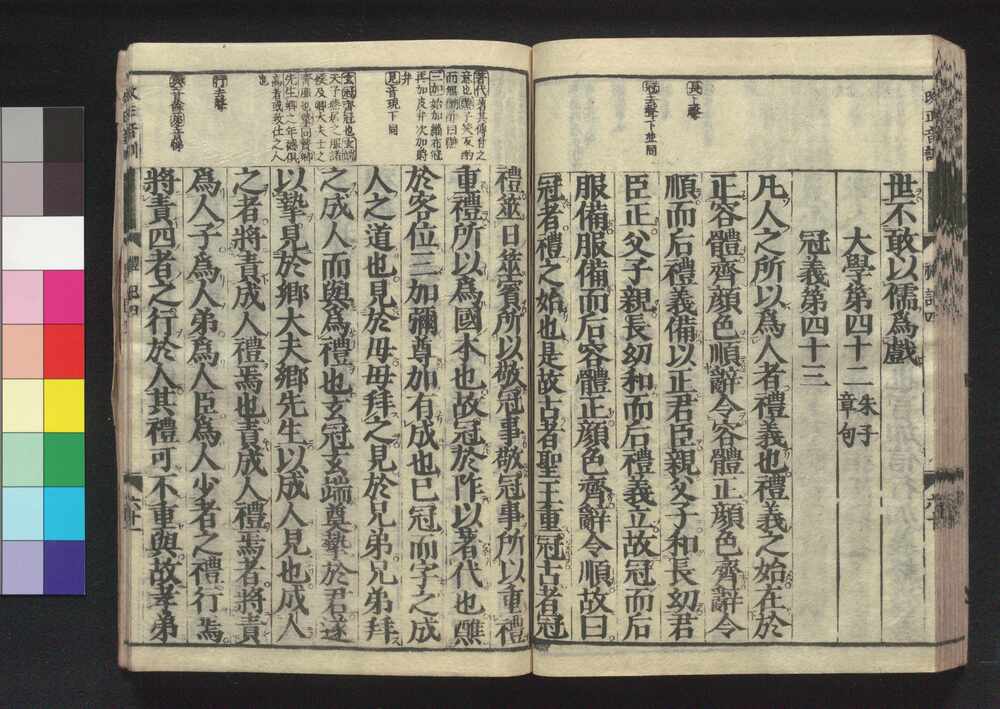 世不敢以儒爲戲
大學第四十二 朱子
章句
冠義第四十三
凡人之所以爲人者禮義也禮義之始在於
正容體齊顏色順辭令容體正顏色齊辭令
順而后禮義備以正君臣親父子和長幼君
臣正父子親長幼和而后禮義立故冠而后
服備服備而后容體正顏色齊辭令順故曰
冠者禮之始也是故古者聖王重冠古者冠
禮筮日筮賓所以敬冠事敬冠事所以重禮
重禮所以爲國本也故冠於阼以著代也醮
於客位三加彌尊加有成也已冠而字之成
人之道也見於母母拜之見於兄弟兄弟拜
之成人而與爲禮也玄冠玄端奠摯於君遂
以摯見於鄉大夫鄉先生以成人見也成人
之者將責成人禮焉也責成人禮焉者將責
爲人子爲人弟爲人臣爲人少者之禮行焉
將責四者之行於人其禮可不重與故孝弟
長上聲
冠去聲下並同
三加始加緇布冠
再加皮弁次加爵
弁
見音現下同
行去聲
禮記四
六十